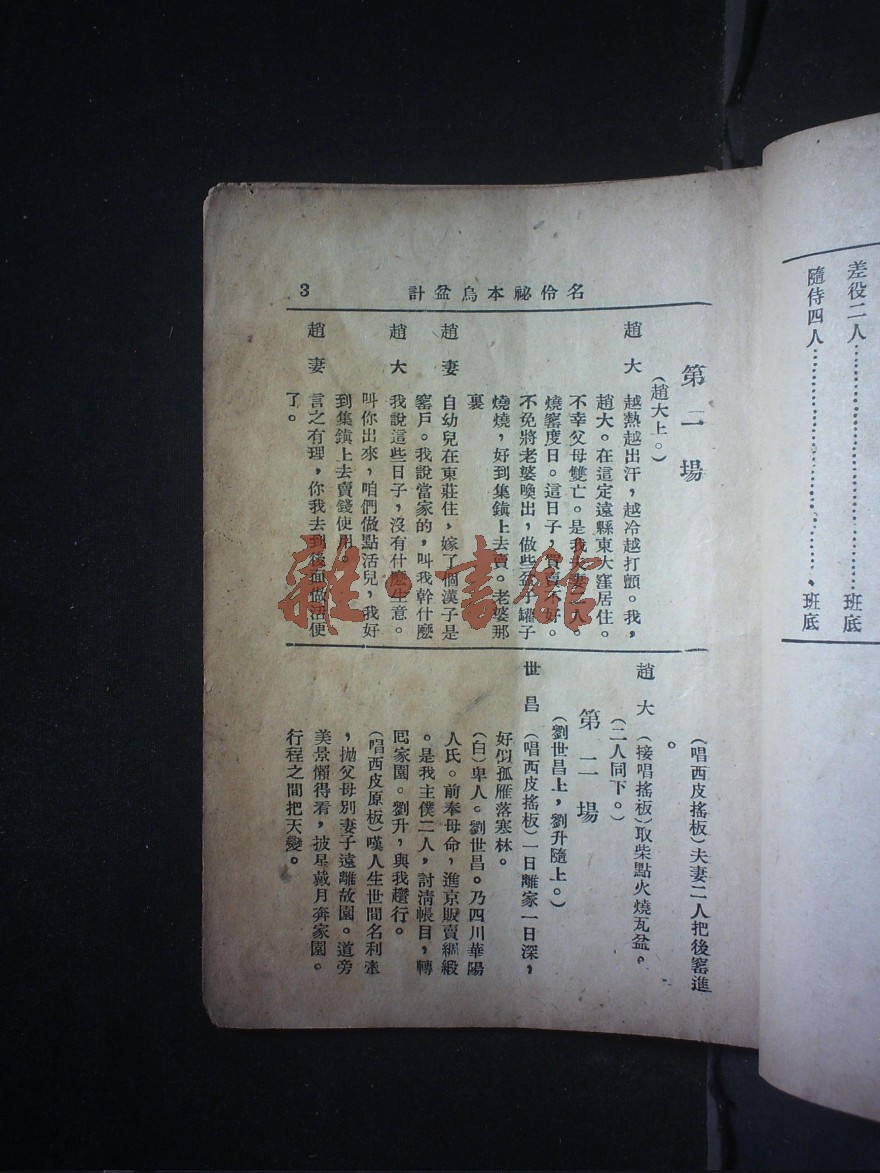 差役二人……………………班底
隨侍四人……………………、班底
名伶祕本烏盆計
3
第一場
(趙大上。)
趙大 越熱越出汗,越冷越打顫。我,
趙大。在這定遠縣東大窪居住。
不幸父母雙亡。是我夫妻二人。
燒窰度日。這日子,買賣不好。
不免將老婆喚出,做些盆子罐子
燒燒,好到集鎮上去賣。老婆那
裏
趙妻 自幼兒在東莊住,嫁了個漢子是
窰戶。我說當家的,叫我幹什麽
趙大 我說這些日子,沒有什麽生意。
叫你出來,咱們做點活兒,我好
到集鎮上去賣錢使用。
趙妻 言之有理,你我去到後面做活便
了。
(唱西皮搖板)夫妻二人把後窰進
。
趙大 (接唱搖板)取柴點火燒瓦盆。
(二人同下。)
第二場
(劉世昌上,劉升隨上。)
世昌 (唱西皮搖板)一日離家一日深,
好似孤雁落寒林。
(白)卑人。劉世昌。乃四川華陽
人氏。前奉母命,進京販賣綢緞
。是我主僕二人,討清帳目,轉
囘家園。劉升,與我趲行。
(唱西皮原板)嘆人生世間名利牽
,拋父母別妻子遠離故園。道旁
美景懶得看,披星戴月奔家園。
行程之間把天變。
雜·書館